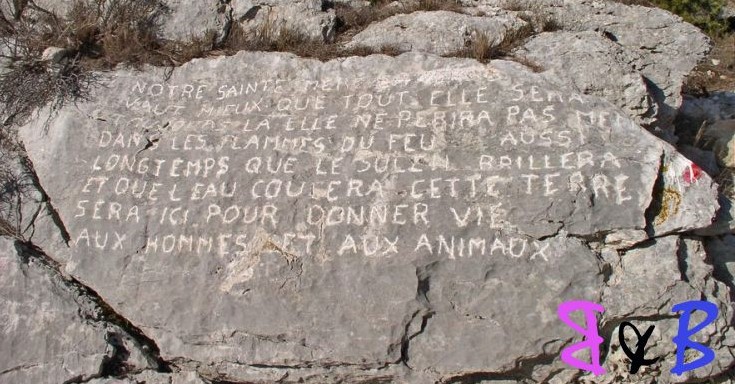 NOTRE SAINTE MERE
VAUT MIEUX QUE TOUT ELLE SERA
LA ELLE NE PERIRA PAS ME
DANS LES FLAMMES DU FEU AUSSI
LONGTEMPS QUE LE SOLEIL BRILLERA
ET QUE L EAU COULERA CETTE TERRE
SERA ICI POUR DONNER VIE
AUX HOMMES ET AUX ANIMAUX
B & B